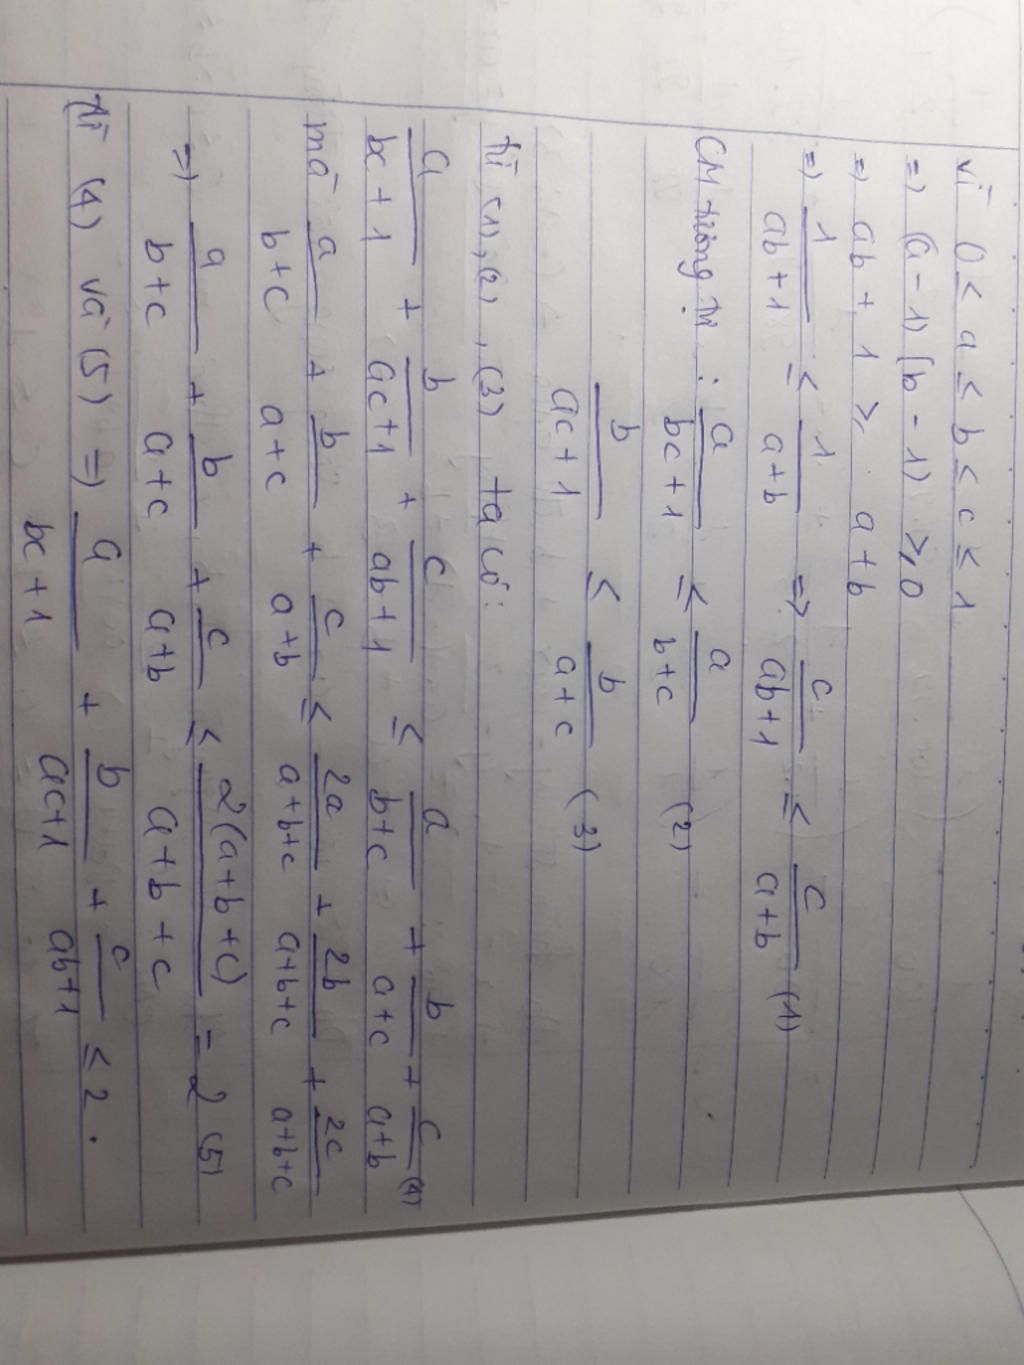 vì 0 ≤ a ≤ b ≤ c ≤ 1
=> (a - 1) (b - 1) ≥ 0
=> ab + 1 ≥ a + b
=> 1/(ab + 1) ≤ 1/(a + b) => c/(ab + 1) ≤ c/(a + b) (1)
CM tương tự : a/(bc + 1) ≤ a/(b + c) (2)
b/(ac + 1) ≤ b/(a + c) (3)
từ (1), (2), (3) ta có:
a/(bc + 1) + b/(ac + 1) + c/(ab + 1) ≤ a/(b + c) + b/(a + c) + c/(a + b) (4)
mà a/(b + c) + b/(a + c) + c/(a + b) ≤ 2a/(a + b + c) + 2b/(a + b + c) + 2c/(a + b + c)
=> a/(b + c) + b/(a + c) + c/(a + b) ≤ 2(a + b + c)/(a + b + c) = 2 (5)
từ (4) và (5) => a/(bc + 1) + b/(ac + 1) + c/(ab + 1) ≤ 2 .